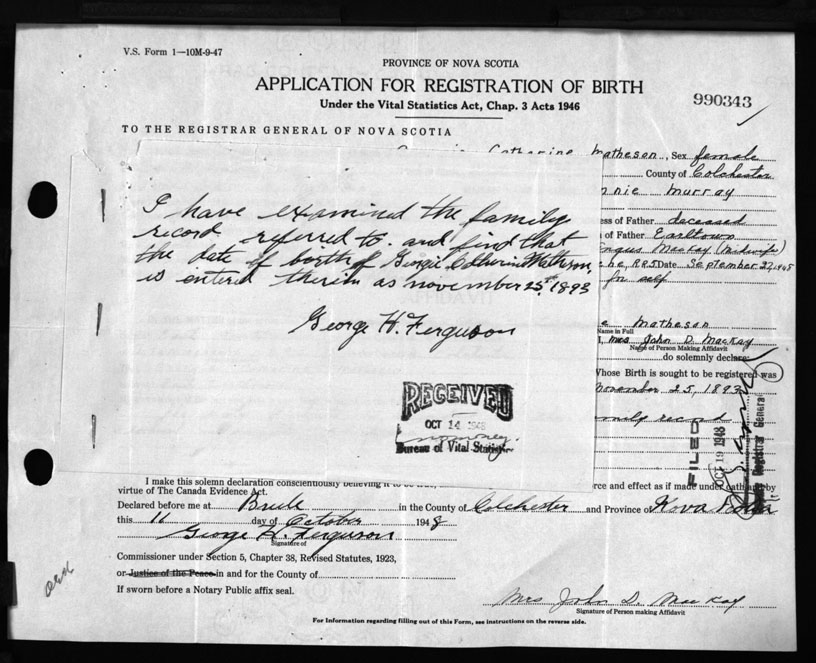 V.S. Form 1—10M-9-47
PROVINCE OF NOVA SCOTIA
APPLICATION FOR REGISTRATION OF BIRTH
Under the Vital Statistics Act, Chap. 3 Acts 1946
990343
TO THE REGISTRAR GENERAL OF NOVA SCOTIA
Catherine Matheson, Sex female
County of Colchester
nnie Murray
ess of Father deceased
of Father Earltown
ngus MacKay (Midwife)
R.R.5 Date September 27, 1948
for self
I have examined the family
record referred to and find that
the date of birth of Georgie Catherine Matheson
is entered therein as november 25th 1893
George H. Ferguson
e Matheson
Name in Full
I, Mrs John D. MacKay
Name of Person Making Affidavit
do solemnly declare:
Whose Birth is sought to be registered was
November 25, 1893
amily record
RECEIVED
OCT 14 1948
Bureau of Vital Statistics
FILED
OCT 19 1948
Registrar General
I make this solemn declaration conscientiously believing it to be true, rce and effect as if made under oath and by
virtue of The Canada Evidence Act.
Declared before me at Brule in the County of Colchester and Province of Nova Scotia
this 11 day of October 1948
George H. Ferguson
Signature of
Commissioner under Section 5, Chapter 38, Revised Statutes, 1923,
or Justice of the Peace in and for the County of
If sworn before a Notary Public affix seal.
Mrs John D. MacKay
Signature of Person making Affidavit
For Information regarding filling out of this Form, see instructions on the reverse side.